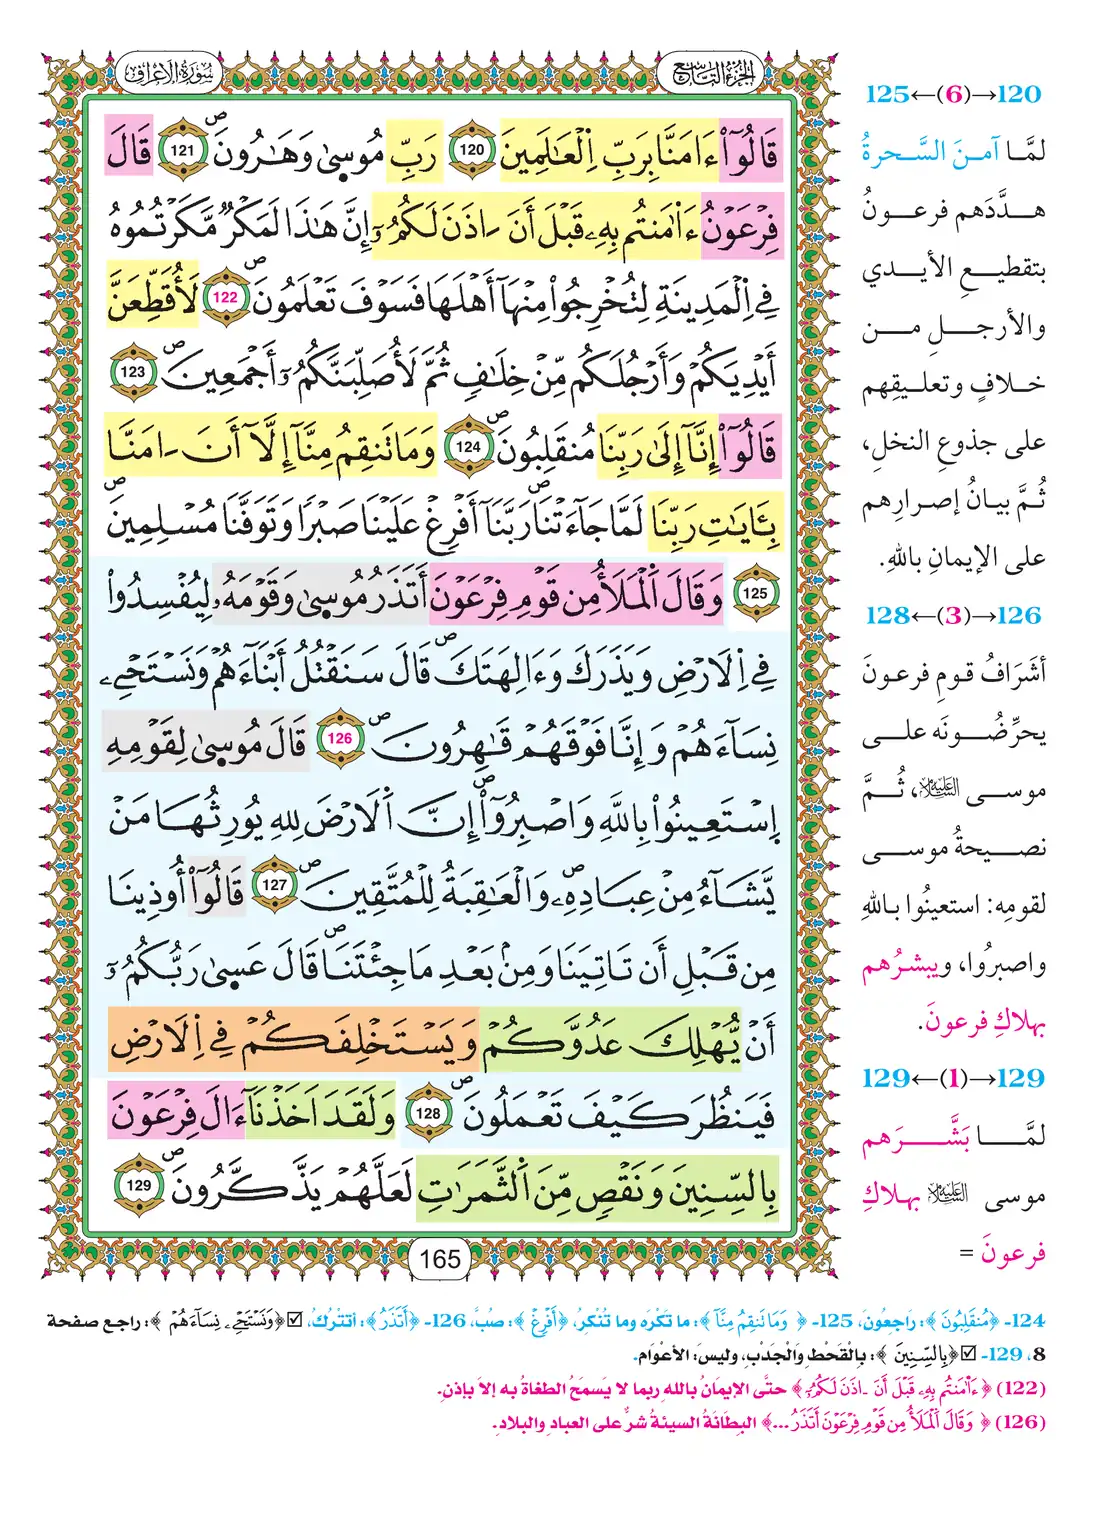 سُورَةُ الاَعْرَافِ
الجُزْءُ التَّاسِعُ
قَالُوٓاْ ءَامَنَّا بِرَبِّ اِ۬لْعَٰلَمِينَ 120 رَبِّ مُوس۪يٰ وَهَٰرُونَۖ 121 قَالَ
فِرْعَوْنُ ءَا۬مَنتُم بِهِۦ قَبْلَ أَنَ ـ اذَنَ لَكُمُۥٓ إِنَّ هَٰذَا لَمَكْرٞ مَّكَرْتُمُوهُ
فِے اِ۬لْمَدِينَةِ لِتُخْرِجُواْ مِنْهَآ أَهْلَهَا فَسَوْفَ تَعْلَمُونَۖ 122 لَأُقَطِّعَنَّ
أَيْدِيَكُمْ وَأَرْجُلَكُم مِّنْ خِلَٰفٖ ثُمَّ لَأُصَلِّبَنَّكُمُۥٓ أَجْمَعِينَۖ 123
قَالُوٓاْ إِنَّآ إِلَىٰ رَبِّنَا مُنقَلِبُونَۖ 124 وَمَا تَنقِمُ مِنَّآ إِلَّآ أَنَ ـ امَنَّا
بِـَٔايَٰتِ رَبِّنَا لَمَّا جَآءَتْنَاۖ رَبَّنَآ أَفْرِغْ عَلَيْنَا صَبْراٗ وَتَوَفَّنَا مُسْلِمِينَۖ
125 وَقَالَ اَ۬لْمَلَأُ مِن قَوْمِ فِرْعَوْنَ أَتَذَرُ مُوس۪يٰ وَقَوْمَهُۥ لِيُفْسِدُواْ
فِے اِ۬لَارْضِ وَيَذَرَكَ وَءَالِهَتَكَۖ قَالَ سَنَقْتُلُ أَبْنَآءَهُمْ وَنَسْتَحْيِۦ
نِسَآءَهُمْ وَإِنَّا فَوْقَهُمْ قَٰهِرُونَۖ 126 قَالَ مُوس۪يٰ لِقَوْمِهِ
اِ۪سْتَعِينُواْ بِاللَّهِ وَاصْبِرُوٓاْۖ إِنَّ اَ۬لَارْضَ لِلهِ يُورِثُهَا مَنْ
يَّشَآءُ مِنْ عِبَادِهِۦۖ وَالْعَٰقِبَةُ لِلْمُتَّقِينَۖ 127 قَالُوٓاْ أُوذِينَا
مِن قَبْلِ أَن تَاتِيَنَا وَمِنۢ بَعْدِ مَا جِئْتَنَاۖ قَالَ عَس۪يٰ رَبُّكُمُۥٓ
أَنْ يُّهْلِكَ عَدُوَّكُمْ وَيَسْتَخْلِفَكُمْ فِے اِ۬لَارْضِ
فَيَنظُرَ كَيْفَ تَعْمَلُونَۖ 128 وَلَقَدَ اَخَذْنَآ ءَالَ فِرْعَوْنَ
بِالسِّنِينَ وَنَقْصٖ مِّنَ اَ۬لثَّمَرَٰتِ لَعَلَّهُمْ يَذَّكَّرُونَۖ 129
165
120→(6)←125
لمَّا آمنَ السَّحرةُ
هدَّدَهم فرعونُ
بتقطيعِ الأيدي
والأرجلِ من
خلافٍ وتعليقِهم
على جذوعِ النخلِ،
ثُمَّ بيانُ إصرارِهم
على الإيمانِ باللهِ.
126→(3)←128
أشَرَافُ قومِ فرعونَ
يحرِّضُونَه على
موسى ﷵ، ثُمَّ
نصيحةُ موسى
لقومِه: استعينُوا باللهِ
واصبرُوا، ويبشرُهم
بهلاكِ فرعونَ.
129→(1)←129
لمَّا بَشَّرَهم
موسى ﷵ بهلاكِ
فرعونَ =
124- ﴿مُنقَلِبُونَ﴾: راجِعُونَ، 125- ﴿وَمَا تَنقِمُ مِنَّآ﴾: ما تَكْرَه وما تُنْكِرُ، ﴿أَفْرِغْ﴾: صُبَّ، 126- ﴿أَتَذَرُ﴾: أتتْرُكُ، ☑﴿وَنَسْتَحْيِۦ نِسَآءَهُمْ﴾: راجع صفحة
8، 129- ☑﴿بِالسِّنِينَ﴾: بِالْقَحْطِ وَالْجَدْبِ، وليسَ: الأعْوَام.
(122) ﴿ءَا۬مَنتُم بِهِۦ قَبْلَ أَنَ ـ اذَنَ لَكُمُۥٓ﴾ حتَّى الإيمَانُ بالله ربما لا يَسمَحُ الطغاةُ به إلا بإذنٍ.
(126) ﴿وَقَالَ اَ۬لْمَلَأُ مِن قَوْمِ فِرْعَوْنَ أَتَذَرُ ...﴾ البِطَانَةُ السيئةُ شرٌّ على العباد والبلاد.